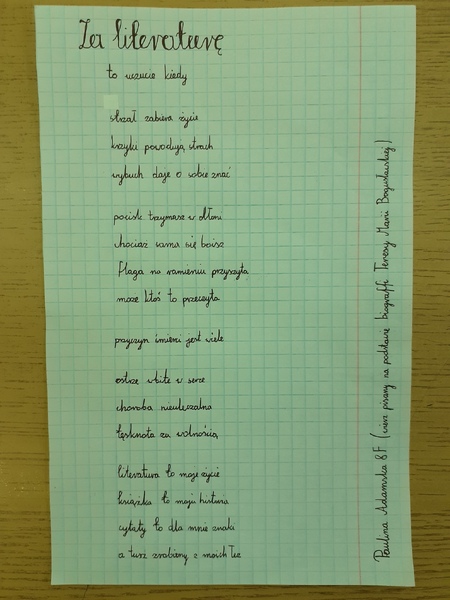 Za literaturę
to uczucie kiedy
strzał zabiera życie
krzyki powodują strach
wybuch daje o sobie znać
pocisk trzymasz w dłoni
chociaż sama się boisz
flaga na ramieniu przyszyta
może ktoś to przeczyta
przyczyn śmierci jest wiele
ostrze wbite w serce
choroba nieuleczalna
tęsknota za wolnością
literatura to moje życie
książka to moja historia
cytaty to dla mnie znaki
a tusz zrobiony z moich łez
Paulina Adamska 8F (wiersz pisany na podstawie biografii Teresy Marii Bogusławskiej)